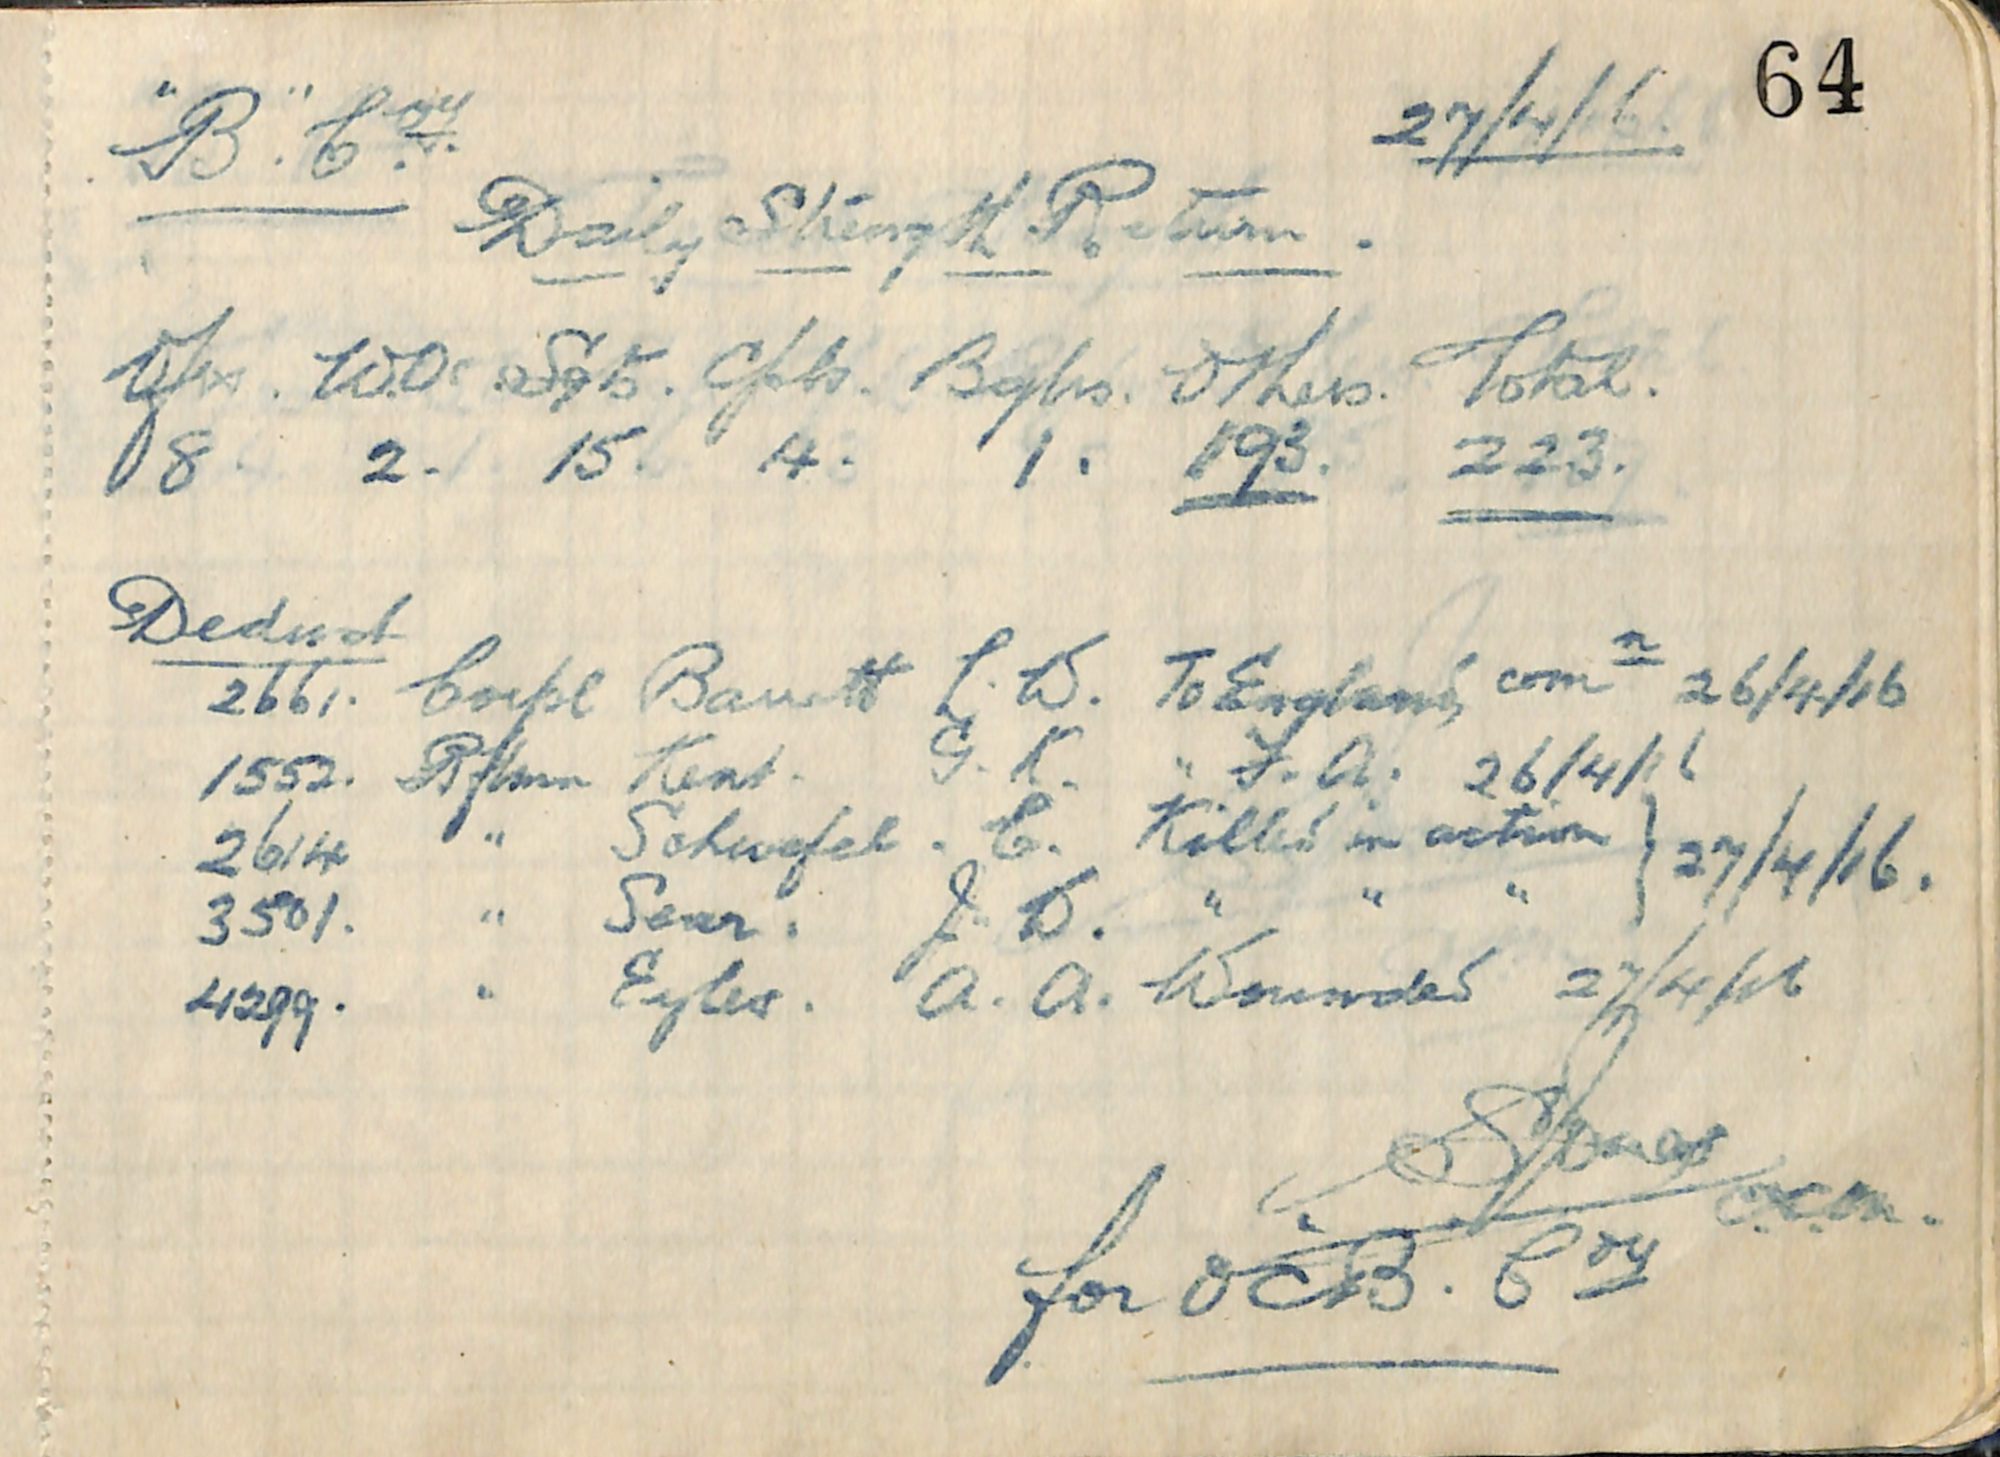 64
"B". Coy. 27/4/16.
Daily Strength Return.
Ofrs. W.Os. Sgts. Cpls. Buglrs. Others. Total.
8. 2. 15. 4. 1. 193. 223.
Deduct
2661. Corpl Barrett L. W. To England, comn 26/4/16
1552. Rflmn Kent. G. K. " F. A. 26/4/16
2614 " Schwefel. C. Killed in action } 27/4/16.
3501. " Sear. J. W. " " "
4299. " Eyles. A. A. Wounded 27/4/16
Jones
for O C B. Coy